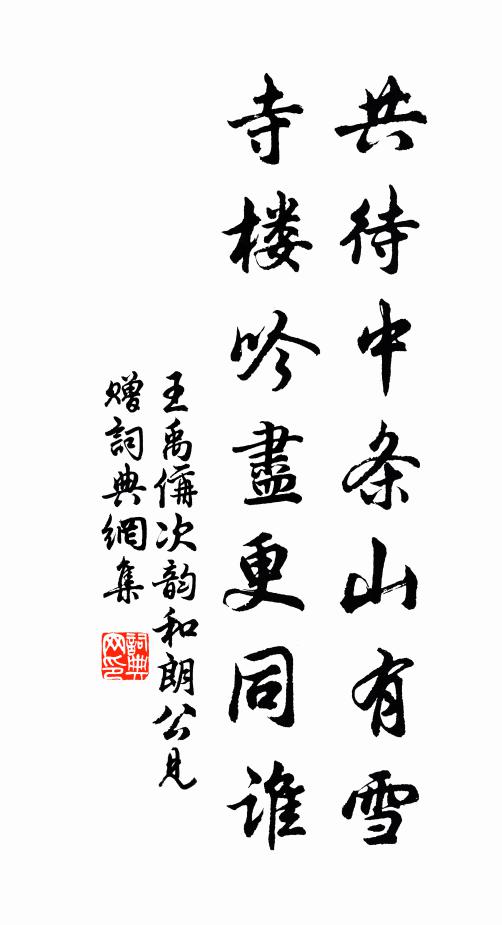 共待中条山有雪
寺楼吟盡更同誰
王禹偁次韵和朗公見
贈詞典網集
詞典
网印